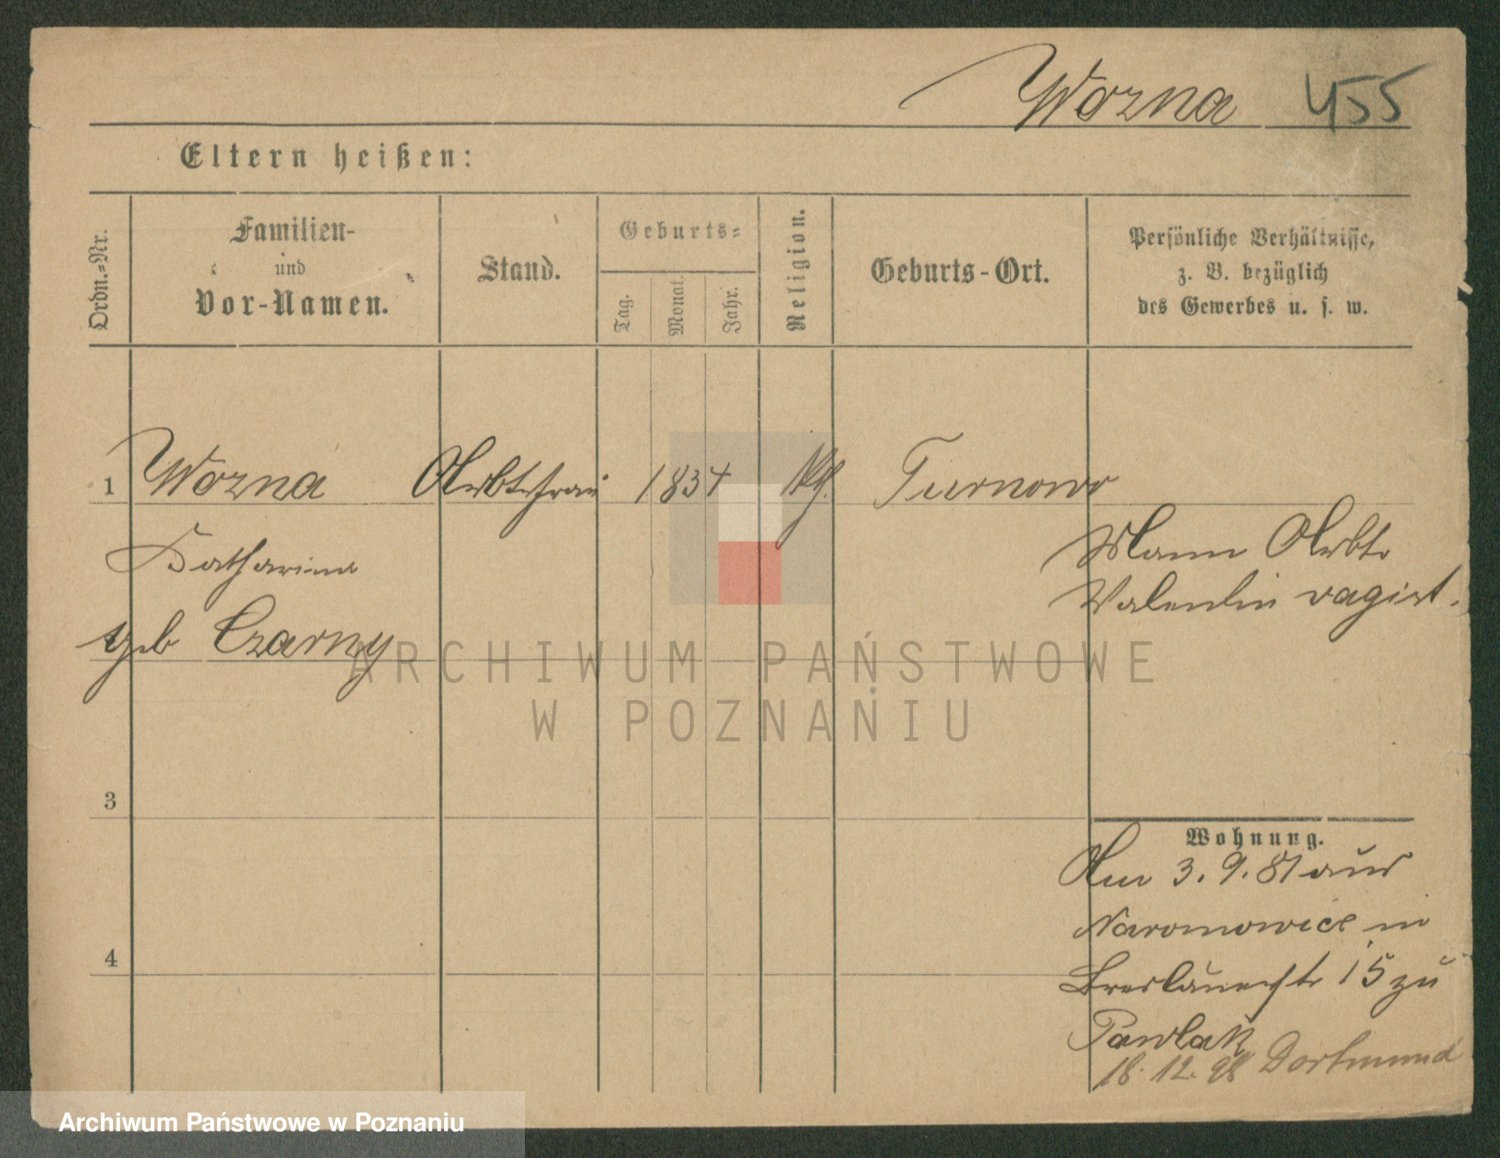 Wozna 455
Eltern heißen:
Ordn.-Nr.
Familien-
und
Vor-Namen.
Stand.
Geburts-
Tag.
Monat.
Jahr.
Religion.
Geburts-Ort.
Persönliche Verhältnisse,
z. B. bezüglich
des Gewerbes u. s. w.
1 Wozna Arbtrfrau 1834 Kth. Turnowo
Katharina
geb Czarny
Mann Arbtr
Valentin vagirt.
3
4
Wohnung.
Am 3. 9. 81 aus
Naromowice in
Breslauerstr 15 zu
Pawlak
18. 12. 98 Dortmund
ARCHIWUM PAŃSTWOWE
W POZNANIU
Archiwum Państwowe w Poznaniu